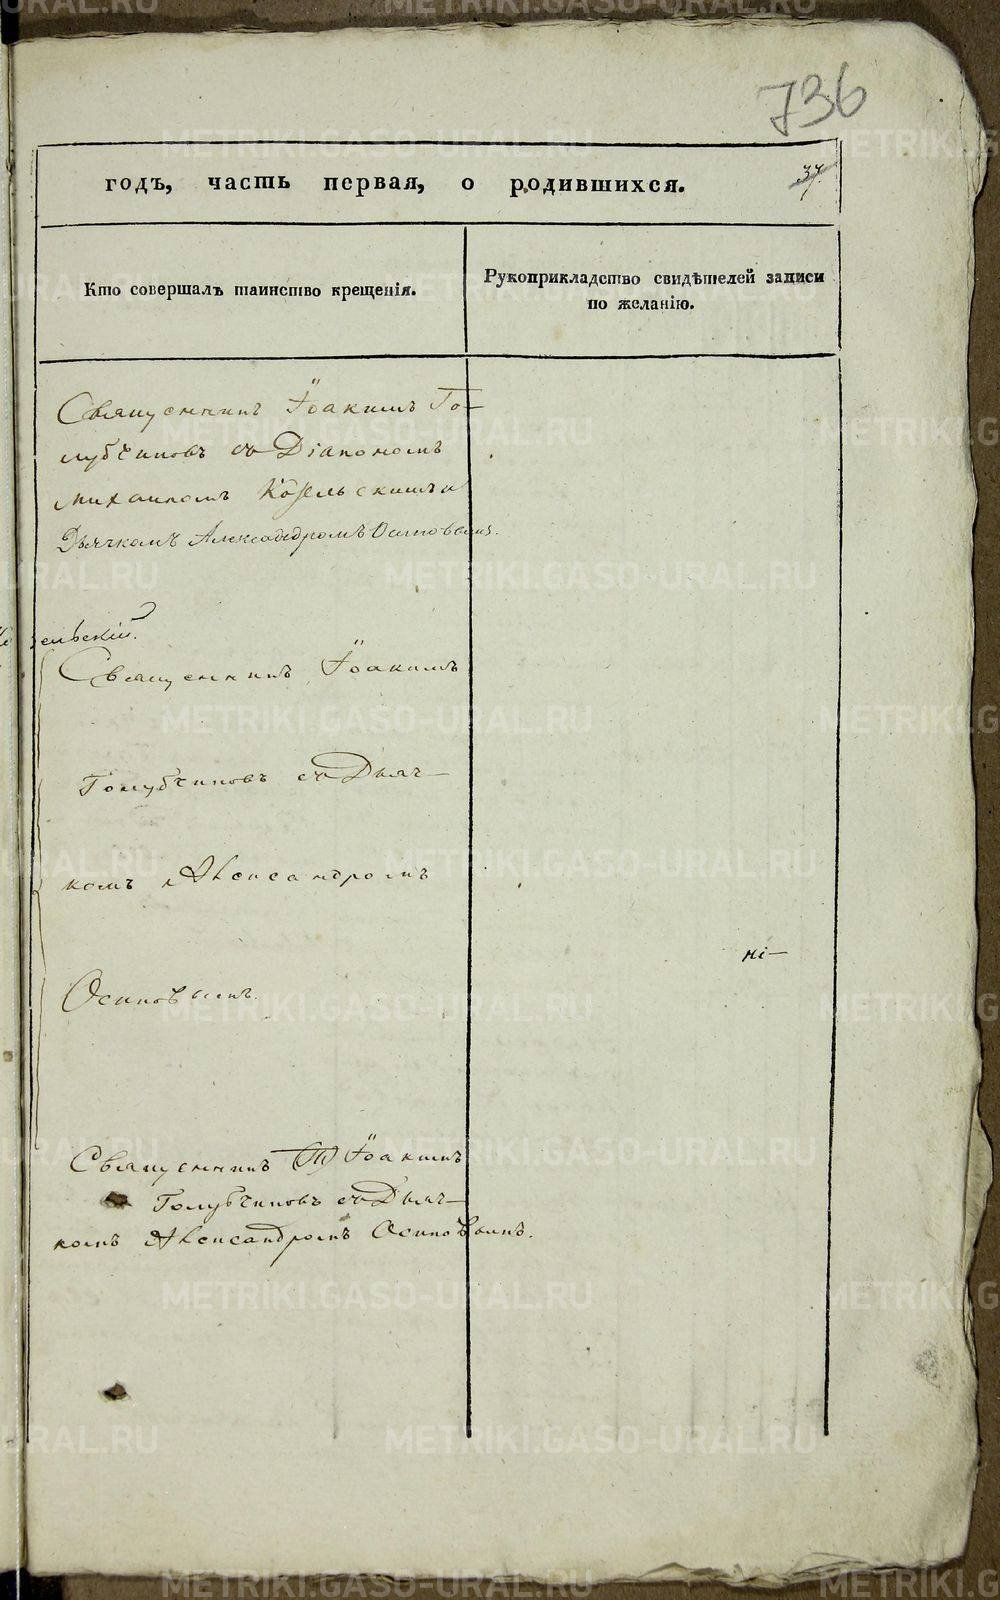 736
годъ, часть первая, о родившихся.
37.
Кто совершалъ таинство крещенія.
Рукоприкладство свидѣтелей записи
по желанію.
Священникъ Іоакимъ Го-
лубчиковъ съ Діакономъ
Михаиломъ Козельскимъ и
Дьячкомъ Александромъ Осиповымъ.
зельскій.
Священникъ Іоакимъ
Голубчиковъ съ Дьяч-
комъ Александромъ
ні-
Осиповымъ.
Священникъ Іоакимъ
Голубчиковъ съ Дьяч-
комъ Александромъ Осиповымъ.
METRIKI.GASO-URAL.RU